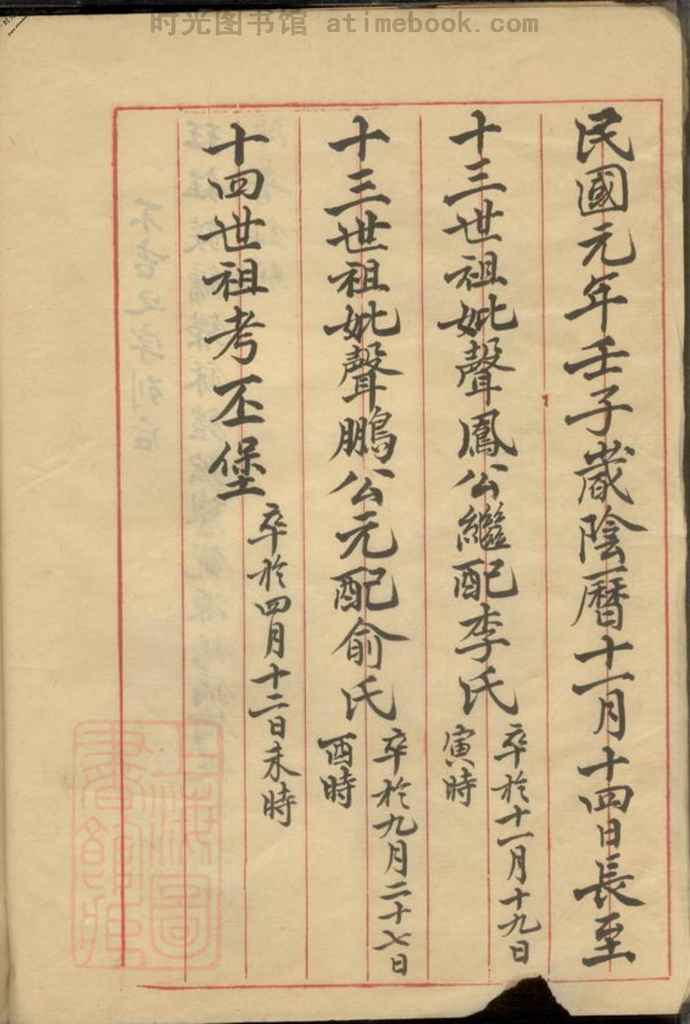 时光图书馆 atimebook.com
民國元年壬子歲陰曆十一月十四日長至
十三世祖妣聲鳳公繼配李氏
卒於十一月十九日
寅時
十三世祖妣聲鵬公元配俞氏
卒於九月二十七日
酉時
十四世祖考丕堡
卒於四月十二日未時